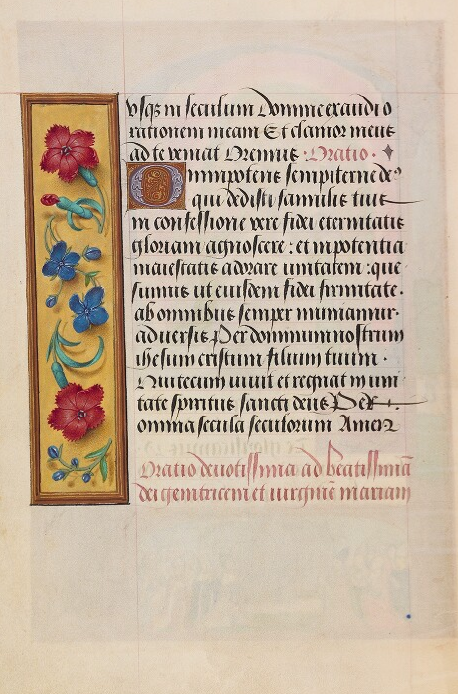 vsq3 in seculum Domine exaudi o
rationem meam Et clamor meus
ad te veniat Oremus · Oratio ·
Omnipotens sempiterne de⁹
qui dedisti famulis tuis
in confessione vere fidei eternitatis
gloriam agnoscere : et in potentia
maiestatis adorare unitatem : que
sumus ut eiusdem fidei firmitate ·
ab omnibus semper muniamur ·
adversis Per dominum nostrum
ihesum cristum filium tuum ·
Qui tecum vivit et regnat in uni
tate spiritus sancti deus Per
omnia secula seculorum Amen
Oratio devotissima ad beatissimā
dei genitricem et virginē mariam